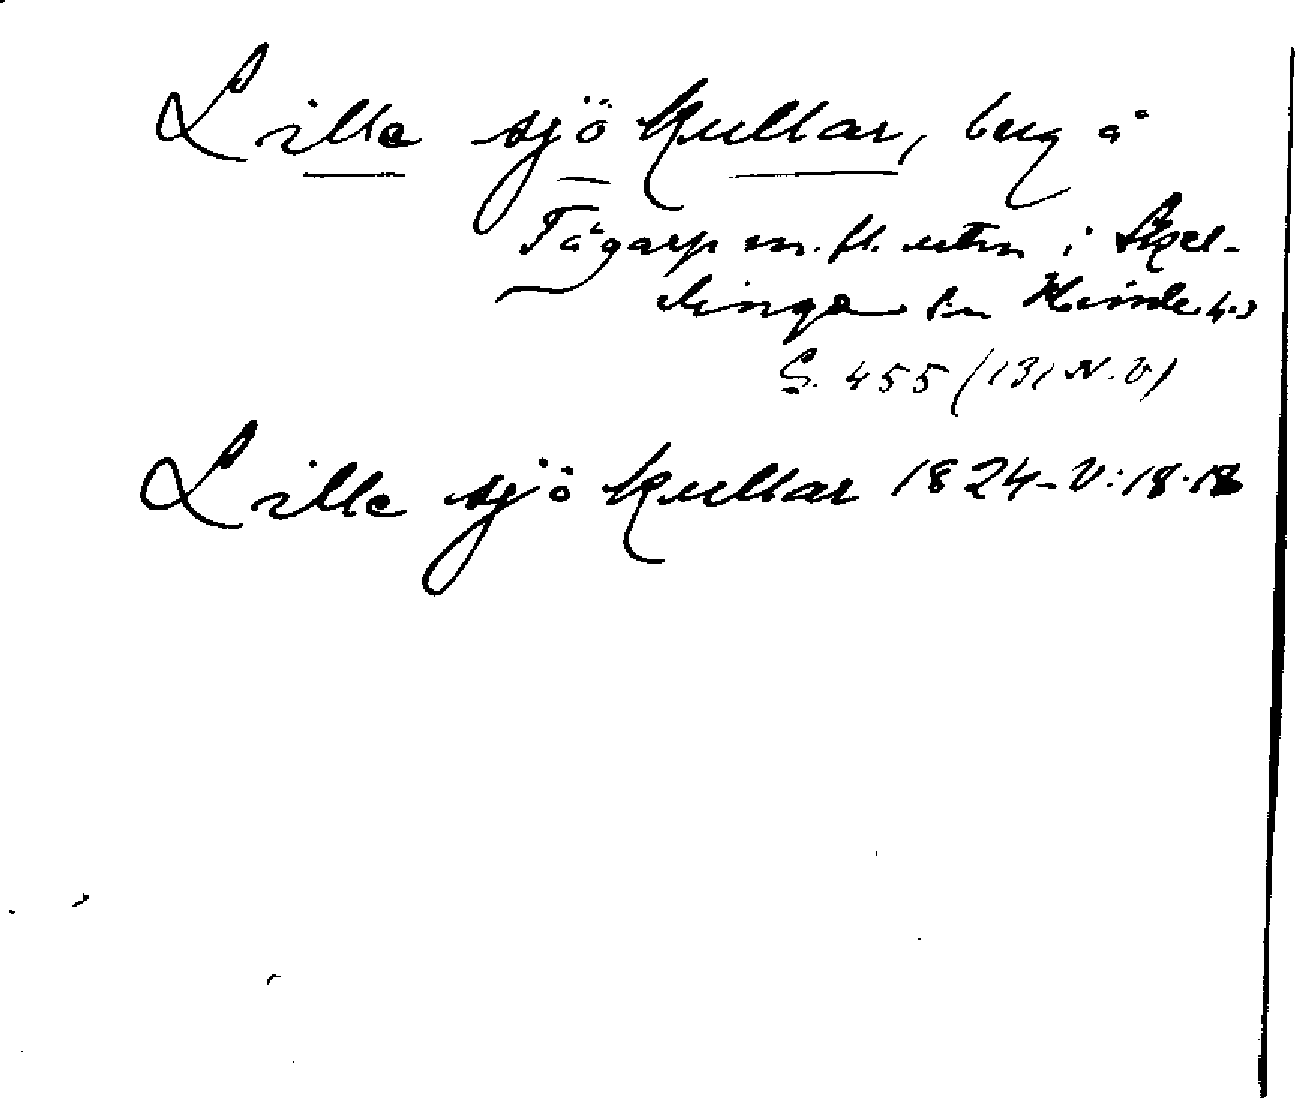 Lille sjö kullar, berg å
Tågarp m. fl. utm i Skel-
linge sn Himle hd
S. 455 (131 N.V)
Lille sjö kullar 1824-V:18.18